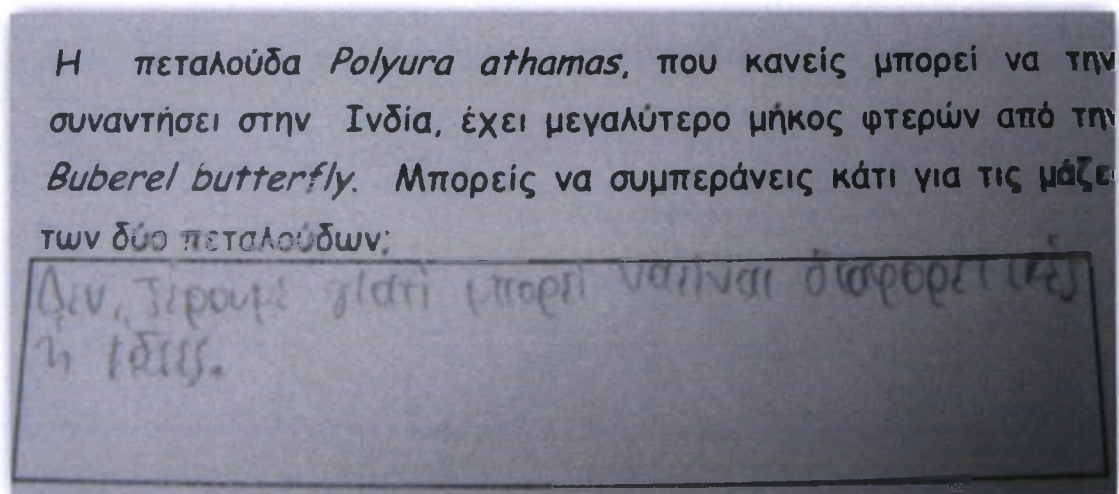 Η πεταλούδα Polyura athamas, που κανείς μπορεί να την
συναντήσει στην Ινδία, έχει μεγαλύτερο μήκος φτερών από την
Buberel butterfly. Μπορείς να συμπεράνεις κάτι για τις μάζε
των δύο πεταλούδων;
Δεν, ξέρουμε γιατί μπορεί να είναι διαφορετικές
ή ίδιες.